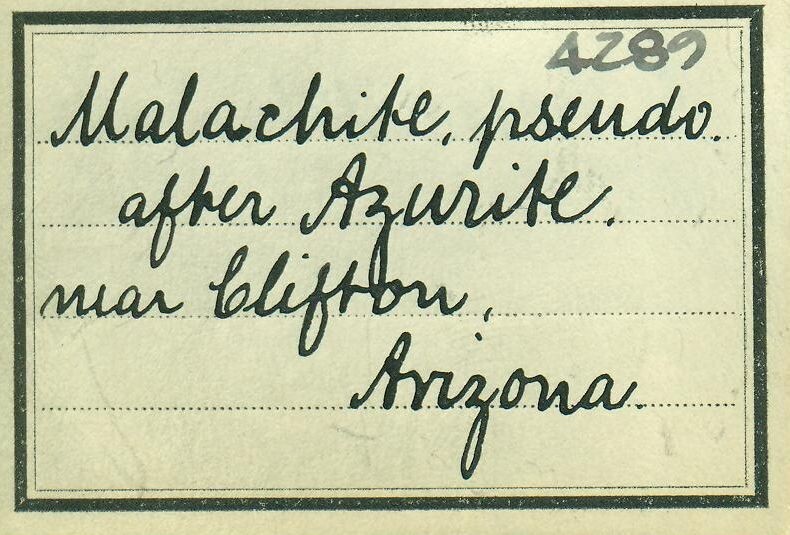 4289
Malachite, pseudo.
after Azurite.
near Clifton,
Arizona.